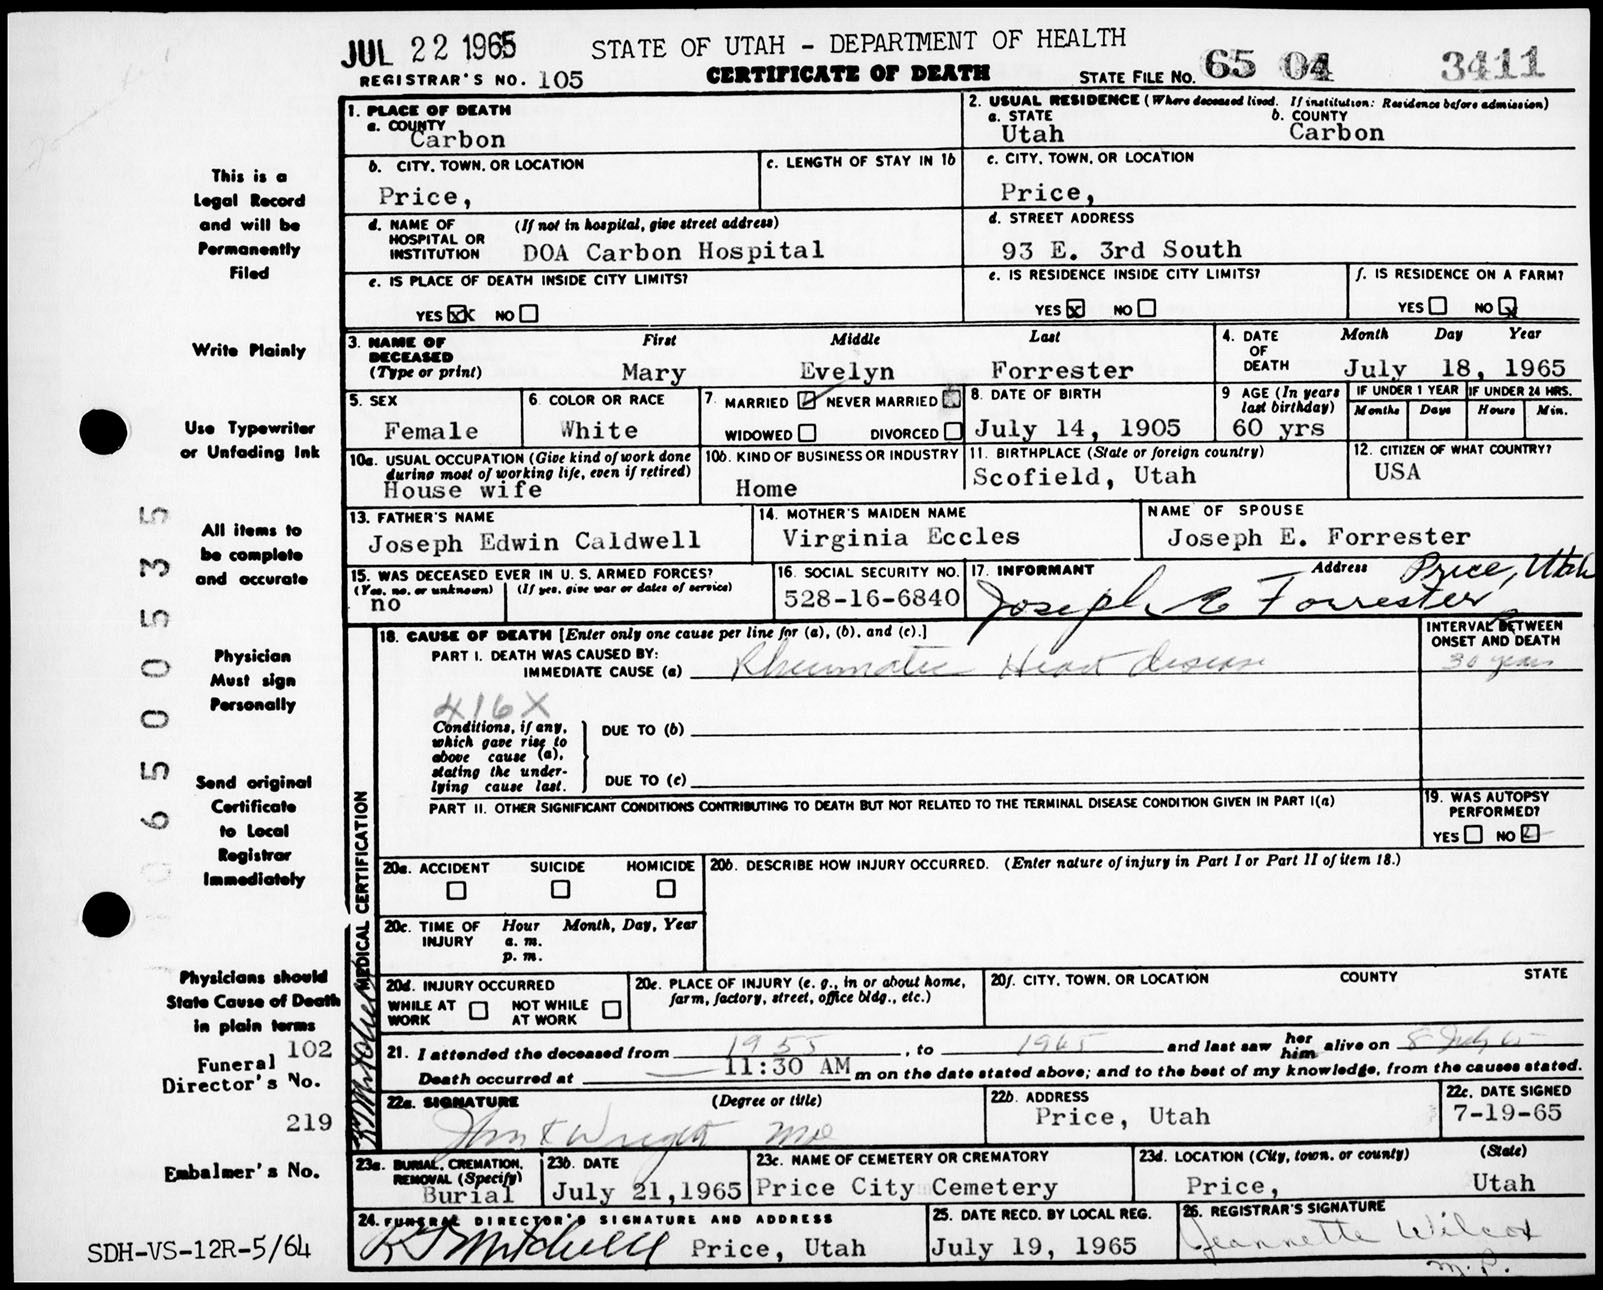 JUL 22 1965
STATE OF UTAH - DEPARTMENT OF HEALTH
REGISTRAR'S NO. 105
CERTIFICATE OF DEATH
STATE FILE NO. 65 04 3411
This is a
Legal Record
and will be
Permanently
Filed
Write Plainly
Use Typewriter
or Unfading Ink
All items to
be complete
and accurate
Physician
Must sign
Personally
Send original
Certificate
to Local
Registrar
Immediately
Physicians should
State Cause of Death
in plain terms
Funeral 102
Director's No.
219
Embalmer's No.
SDH-VS-12R-5/64
0650 0535
1. PLACE OF DEATH
a. COUNTY
Carbon
2. USUAL RESIDENCE (Where deceased lived. If institution: Residence before admission)
a. STATE b. COUNTY
Utah Carbon
b. CITY, TOWN, OR LOCATION
Price,
c. LENGTH OF STAY IN 1b
c. CITY, TOWN, OR LOCATION
Price,
d. NAME OF HOSPITAL OR INSTITUTION (If not in hospital, give street address)
DOA Carbon Hospital
d. STREET ADDRESS
93 E. 3rd South
e. IS PLACE OF DEATH INSIDE CITY LIMITS?
YES X NO
e. IS RESIDENCE INSIDE CITY LIMITS?
YES X NO
f. IS RESIDENCE ON A FARM?
YES NO X
3. NAME OF DECEASED (Type or print)
First Middle Last
Mary Evelyn Forrester
4. DATE OF DEATH
Month Day Year
July 18, 1965
5. SEX
Female
6. COLOR OR RACE
White
7. MARRIED NEVER MARRIED
WIDOWED DIVORCED
8. DATE OF BIRTH
July 14, 1905
9 AGE (In years last birthday)
60 yrs
IF UNDER 1 YEAR IF UNDER 24 HRS.
Months Days Hours Min.
10a. USUAL OCCUPATION (Give kind of work done during most of working life, even if retired)
House wife
10b. KIND OF BUSINESS OR INDUSTRY
Home
11. BIRTHPLACE (State or foreign country)
Scofield, Utah
12. CITIZEN OF WHAT COUNTRY?
USA
13. FATHER'S NAME
Joseph Edwin Caldwell
14. MOTHER'S MAIDEN NAME
Virginia Eccles
NAME OF SPOUSE
Joseph E. Forrester
15. WAS DECEASED EVER IN U. S. ARMED FORCES?
(Yes, no, or unknown) (If yes, give war or dates of service)
no
16. SOCIAL SECURITY NO.
528-16-6840
17. INFORMANT Address
Joseph E Forrester Price, Utah
MEDICAL CERTIFICATION
18. CAUSE OF DEATH [Enter only one cause per line for (a), (b), and (c).]
PART I. DEATH WAS CAUSED BY:
IMMEDIATE CAUSE (a) Rheumatic Heart disease
INTERVAL BETWEEN ONSET AND DEATH
30 years
416X
Conditions, if any, which gave rise to above cause (a), stating the underlying cause last.
DUE TO (b)
DUE TO (c)
PART II. OTHER SIGNIFICANT CONDITIONS CONTRIBUTING TO DEATH BUT NOT RELATED TO THE TERMINAL DISEASE CONDITION GIVEN IN PART I(a)
19. WAS AUTOPSY PERFORMED?
YES NO
20a. ACCIDENT SUICIDE HOMICIDE
20b. DESCRIBE HOW INJURY OCCURRED. (Enter nature of injury in Part I or Part II of item 18.)
20c. TIME OF INJURY Hour Month, Day, Year
a. m.
p. m.
20d. INJURY OCCURRED
WHILE AT WORK NOT WHILE AT WORK
20e. PLACE OF INJURY (e. g., in or about home, farm, factory, street, office bldg., etc.)
20f. CITY, TOWN, OR LOCATION COUNTY STATE
21. I attended the deceased from 1955, to 1965 and last saw her him alive on 8 July 65
Death occurred at 11:30 AM m on the date stated above; and to the best of my knowledge, from the causes stated.
22a. SIGNATURE (Degree or title)
Wright MD
22b. ADDRESS
Price, Utah
22c. DATE SIGNED
7-19-65
23a. BURIAL, CREMATION, REMOVAL (Specify)
Burial
23b. DATE
July 21, 1965
23c. NAME OF CEMETERY OR CREMATORY
Price City Cemetery
23d. LOCATION (City, town, or county) (State)
Price, Utah
24. FUNERAL DIRECTOR'S SIGNATURE AND ADDRESS
Mitchell Price, Utah
25. DATE RECD. BY LOCAL REG.
July 19, 1965
26. REGISTRAR'S SIGNATURE
Jeannette Wilcox